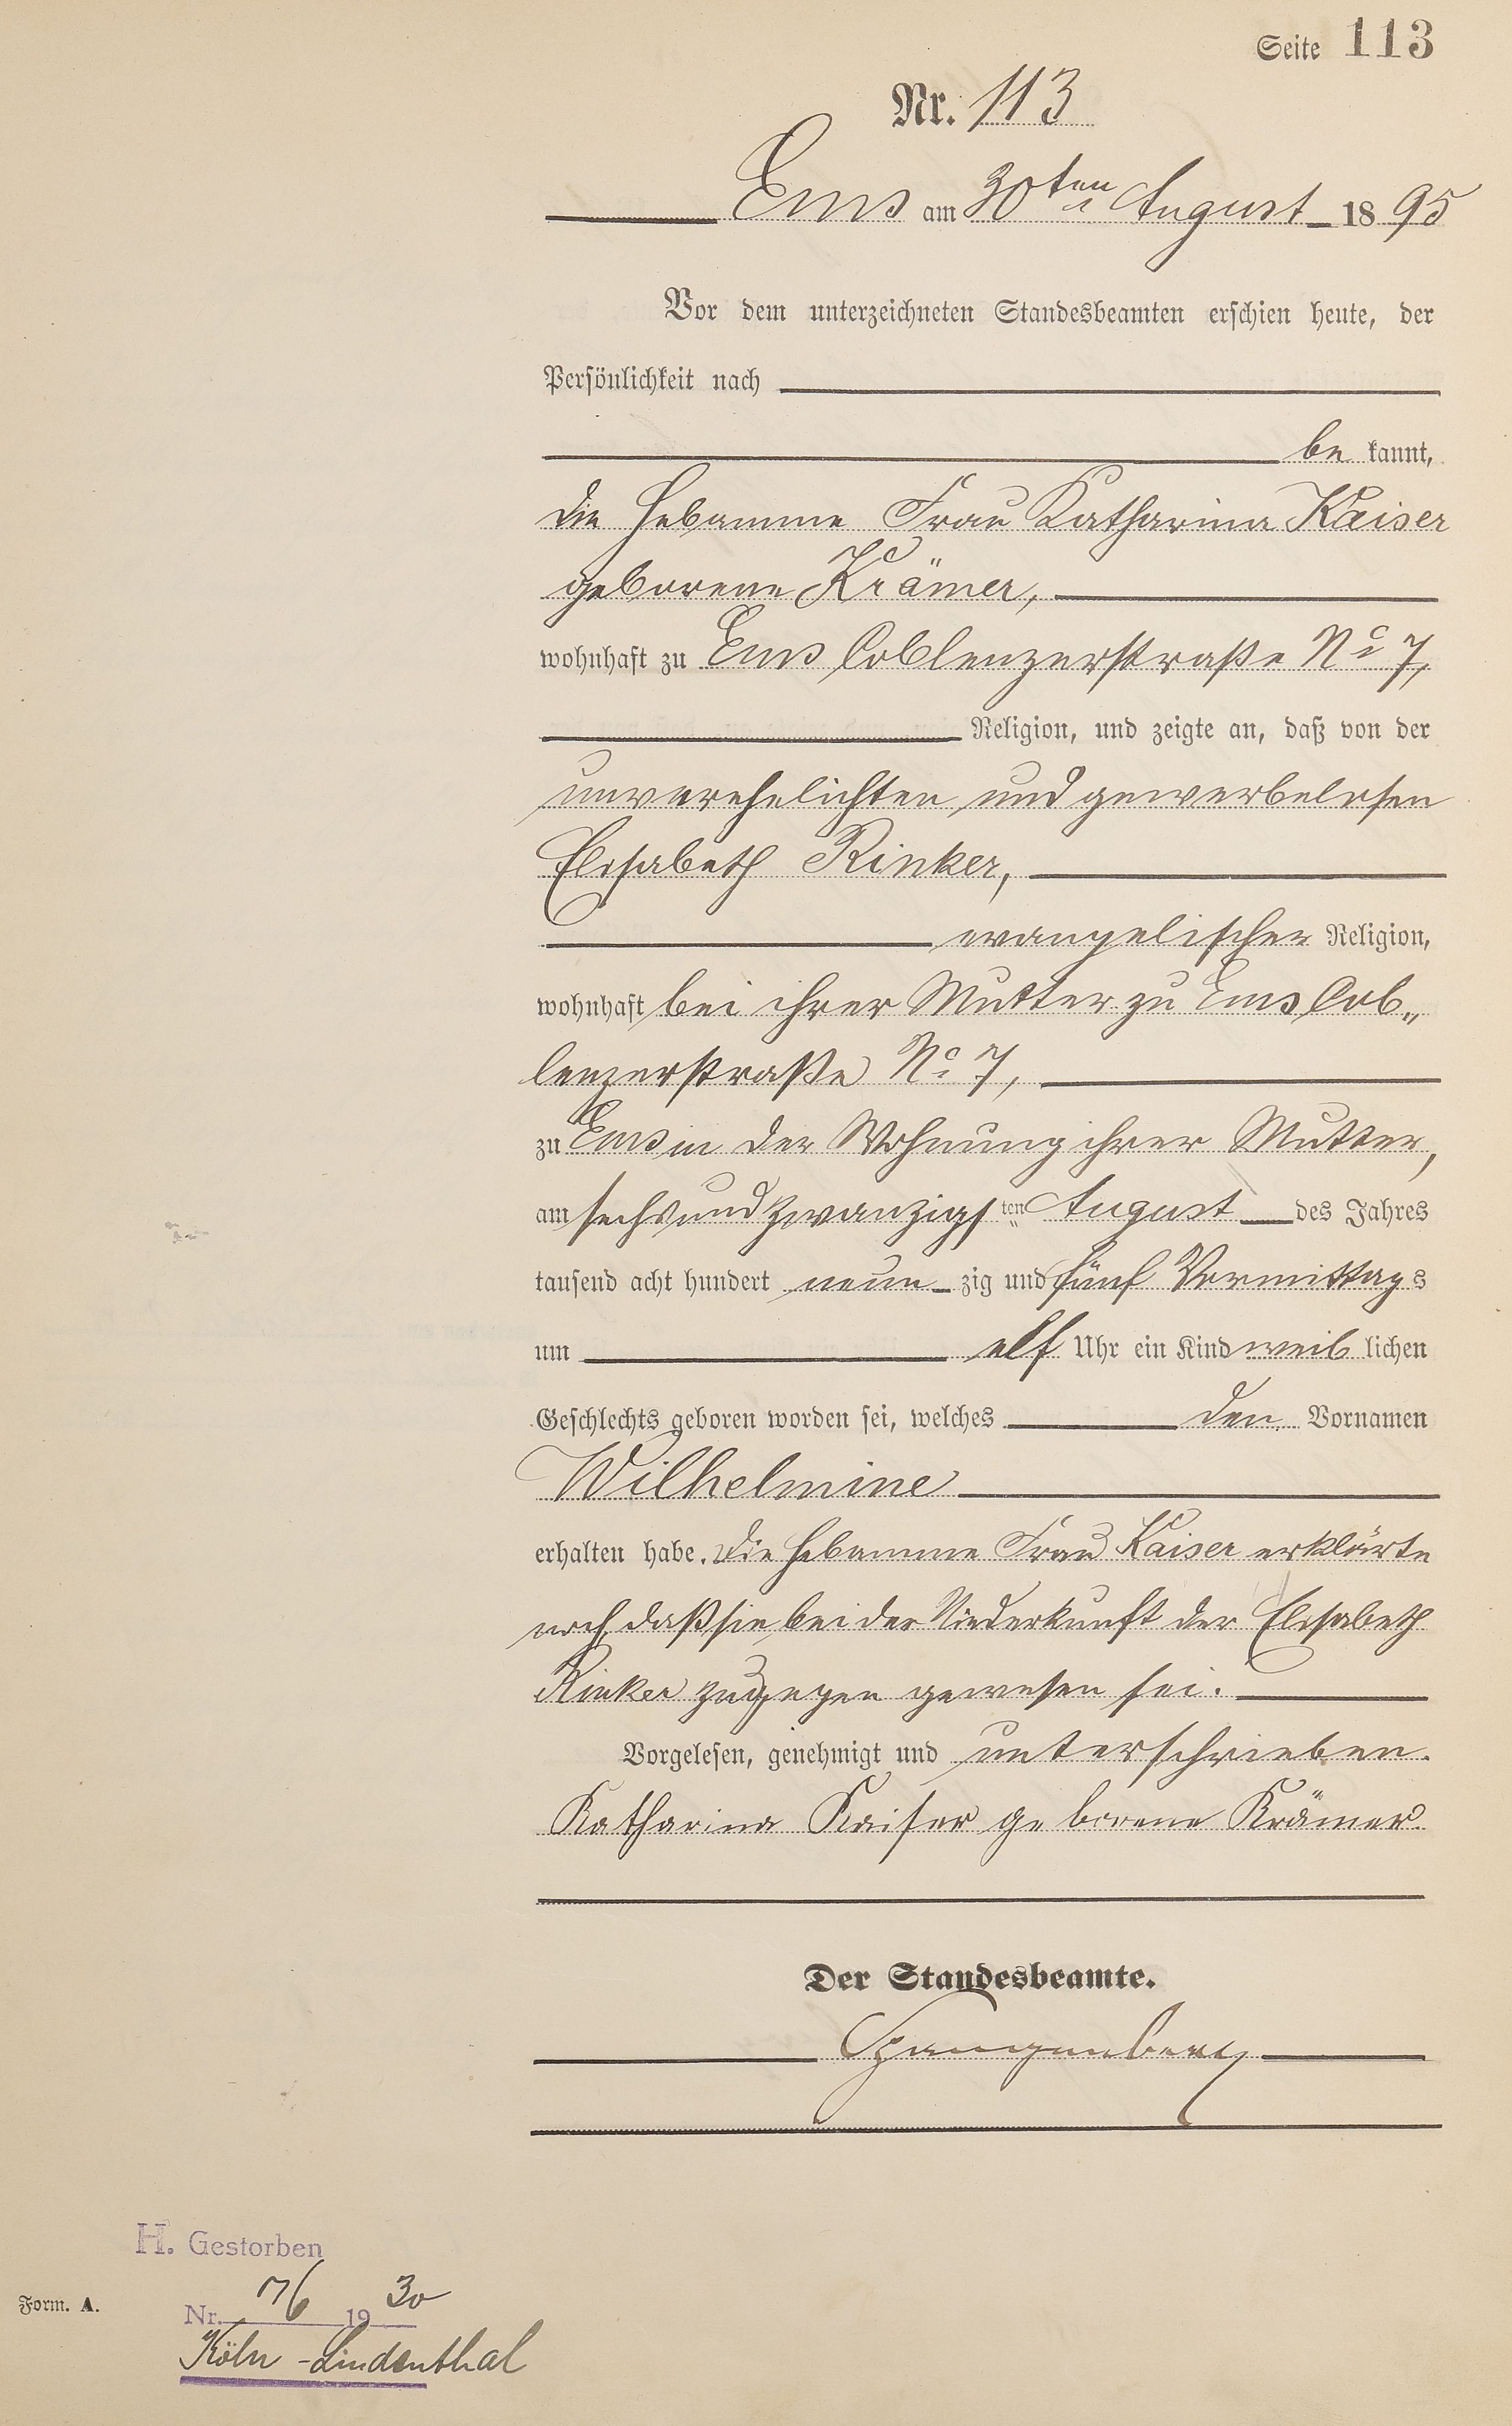 Seite 113
Nr. 113
Ems am 30ten August 1895
Vor dem unterzeichneten Standesbeamten erschien heute, der
Persönlichkeit nach
be kannt,
die Hebamme Frau Katharina Kaiser
geborene Krämer,
wohnhaft zu Ems Coblenzerstraße No 7,
Religion, und zeigte an, daß von der
unverehelichten und gewerbelosen
Elisabeth Rinker,
evangelischer Religion,
wohnhaft bei ihrer Mutter zu Ems Cob„
lenzerstraße No 7,
zu Ems in der Wohnung ihrer Mutter,
am sechsundzwanzigsten August des Jahres
tausend acht hundert neun zig und fünf Vormittags
um elf Uhr ein Kind weib lichen
Geschlechts geboren worden sei, welches den Vornamen
Wilhelmine
erhalten habe. Die Hebamme Frau Kaiser erklärte
noch, daß sie bei der Niederkunft der Elisabeth
Rinker zugegen gewesen sei.
Vorgelesen, genehmigt und unterschrieben.
Katharina Kaiser geborene Krämer
Der Standesbeamte.
Spangenberg
H. Gestorben
Nr. 76 1930
Form. A.
Köln-Lindenthal